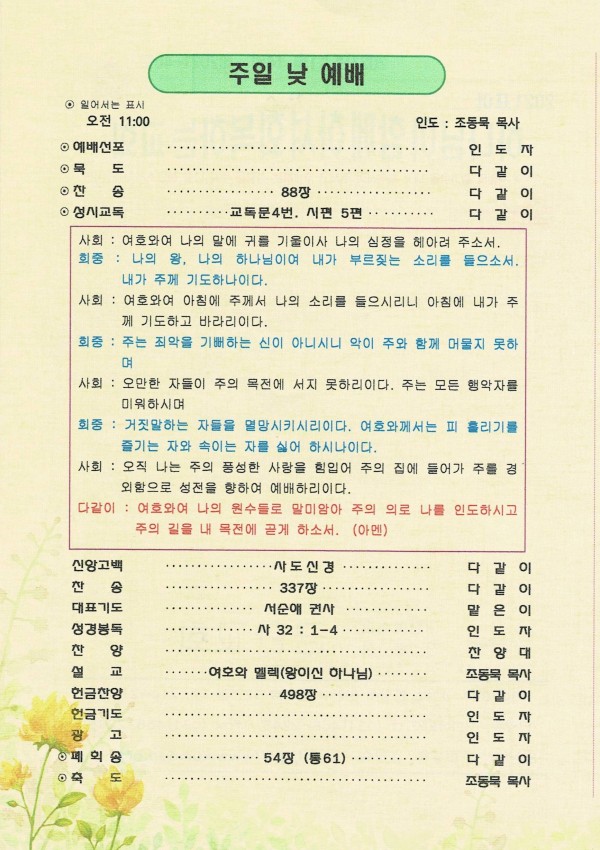 주일 낮 예배
⊙ 일어서는 표시
오전 11:00 인도 : 조동묵 목사
⊙ 예배선포 ································ 인 도 자
⊙ 묵 도 ································ 다 같 이
⊙ 찬 송 ············· 88장 ················· 다 같 이
⊙ 성시교독 ··········교독문4번. 시편 5편 ·· ········ 다 같 이
사회 : 여호와여 나의 말에 귀를 기울이사 나의 심정을 헤아려 주소서.
회중 : 나의 왕, 나의 하나님이여 내가 부르짖는 소리를 들으소서.
내가 주께 기도하나이다.
사회 : 여호와여 아침에 주께서 나의 소리를 들으시리니 아침에 내가 주
께 기도하고 바라리이다.
회중 : 주는 죄악을 기뻐하는 신이 아니시니 악이 주와 함께 머물지 못하
며
사회 : 오만한 자들이 주의 목전에 서지 못하리이다. 주는 모든 행악자를
미워하시며
회중 : 거짓말하는 자들을 멸망시키시리이다. 여호와께서는 피 흘리기를
즐기는 자와 속이는 자를 싫어 하시나이다.
사회 : 오직 나는 주의 풍성한 사랑을 힘입어 주의 집에 들어가 주를 경
외함으로 성전을 향하여 예배하리이다.
다같이 : 여호와여 나의 원수들로 말미암아 주의 의로 나를 인도하시고
주의 길을 내 목전에 곧게 하소서. (아멘)
신앙고백 ················사도신경 ·············· 다 같 이
찬 송 ················ 337장 ················ 다 같 이
대표기도 ············· 서순애 권사 ············· 맡 은 이
성경봉독 ·············사 32 : 1-4 ············· 인 도 자
찬 양 ································ 찬 양 대
설 교 ·······여호와 멜렉(왕이신 하나님) ········ 조동묵 목사
헌금찬양 ················ 498장 ················ 다 같 이
헌금기도 ································ 인 도 자
광 고 ································ 인 도 자
⊙ 폐 회 송 ·············· 54장 (통61) ············ 다 같 이
⊙ 축 도 ································ 조동묵 목사